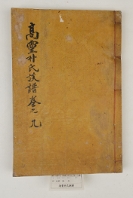 高靈朴氏族譜卷之九